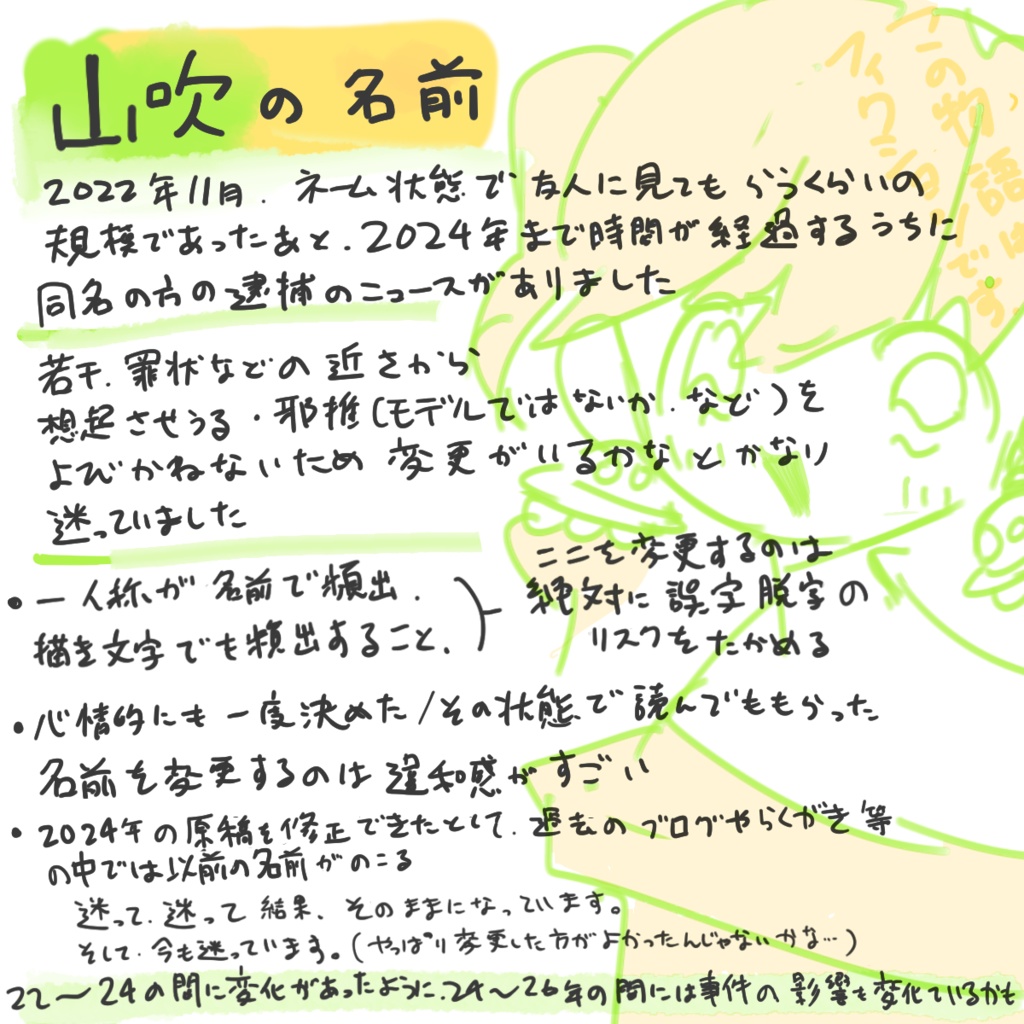 山吹の名前
この物語は
フィクションです。
2022年11月.ネーム状態で友人に見てもらうくらいの
規模であったあと、2024年まで時間が経過するうちに
同名の方の逮捕のニュースがありました
若干、罪状などの近さから
想起させうる・邪推(モデルではないか、など)を
よびかねないため変更がいるかなとかなり
迷っていました
・一人称が名前で頻出、
描き文字でも頻出すること、
ここを変更するのは
絶対に誤字脱字の
リスクをたかめる
・心情的にも一度決めた/その状態で読んでももらった
名前を変更するのは違和感がすごい
・2024年の原稿を修正できたとして、過去のブログやらくがき等
の中では以前の名前がのこる
迷って、迷って結果、そのままになっています。
そして、今も迷っています。(やっぱり変更した方がよかったんじゃないかな…)
22〜24の間に変化があったように、24〜26年の間には事件の影響も変化ているかも